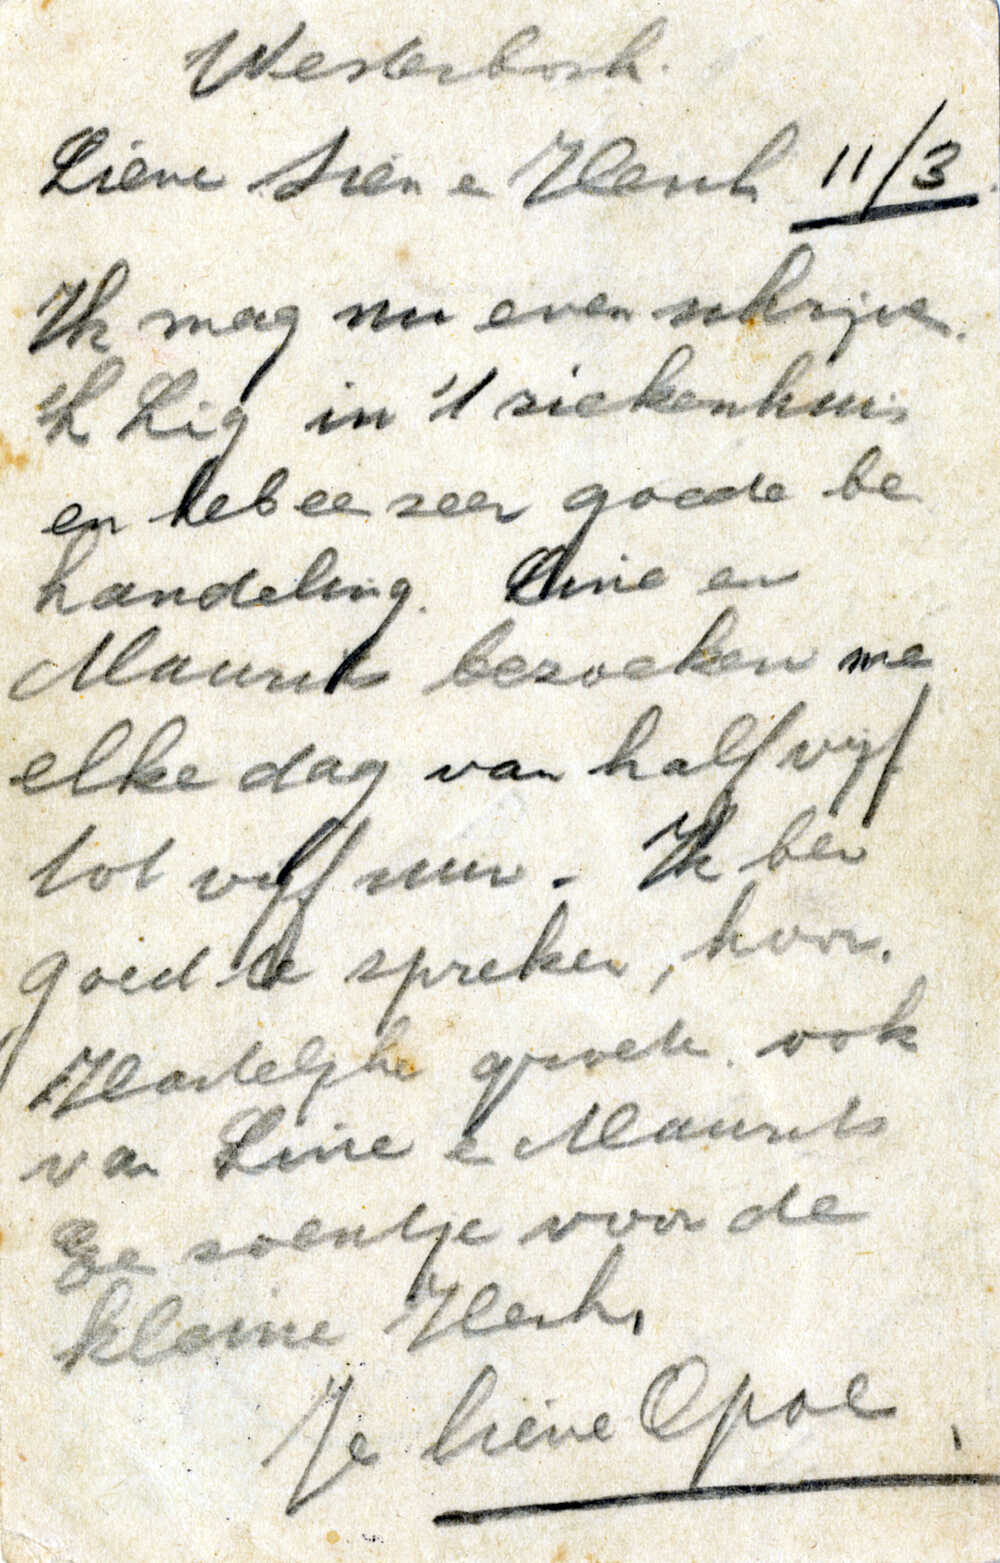 Westerbork.
Lieve Sien e Henk 11/3
Ik mag nu even schrijve.
'k Lig in 't siekenhuis
en heb ee seer goede be
handeling. Line en
Maurits besoeken me
elke dag van half vijf
tot vijf uur. Ik ben
goed te spreken, hoor.
Hartelijke groete. ook
van Line e Maurits
Ee soentje voor de
kleine Henk,
Je lieve Opoe.